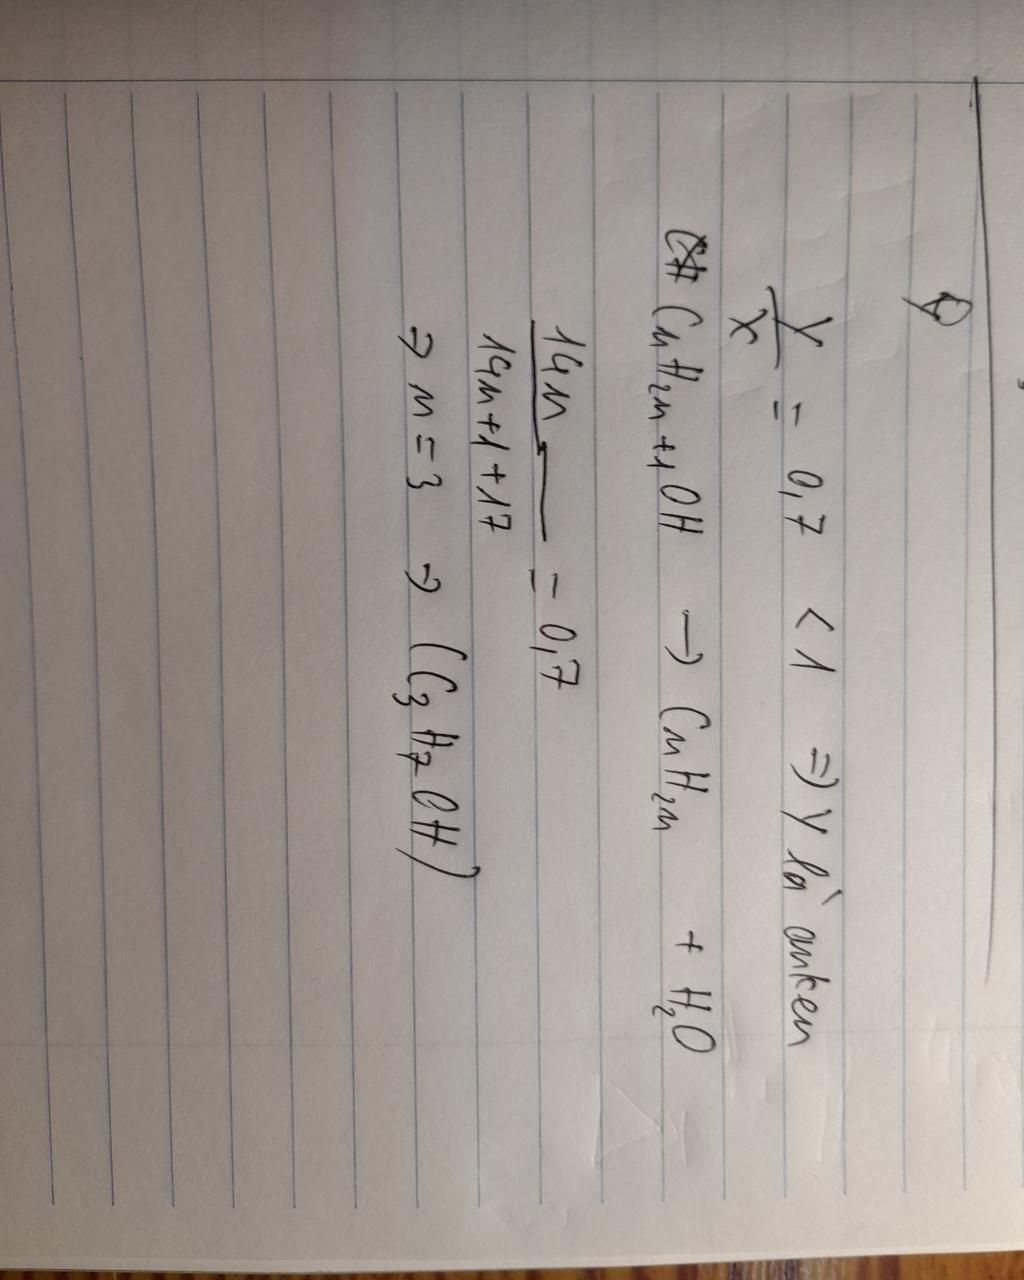 Y
— = 0,7 < 1 => Y là anken
X
CnH2n+1OH → CnH2n + H2O
14n
——— = 0,7
14n+1+17
⇒ n = 3 ⇒ (C3H7OH)